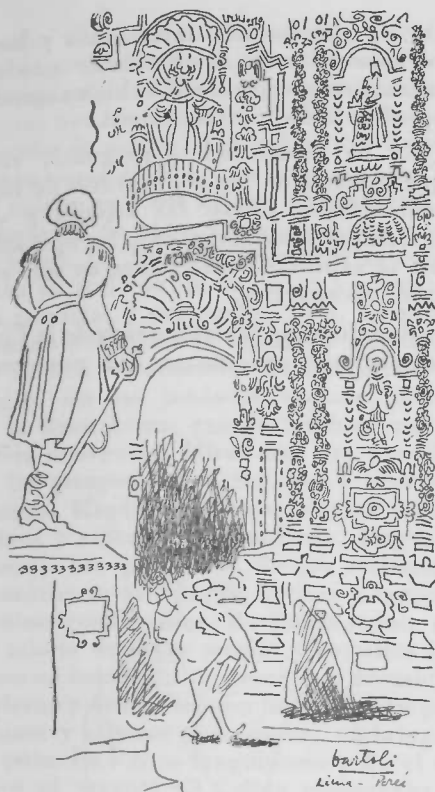 bartoli
Lima - Perú